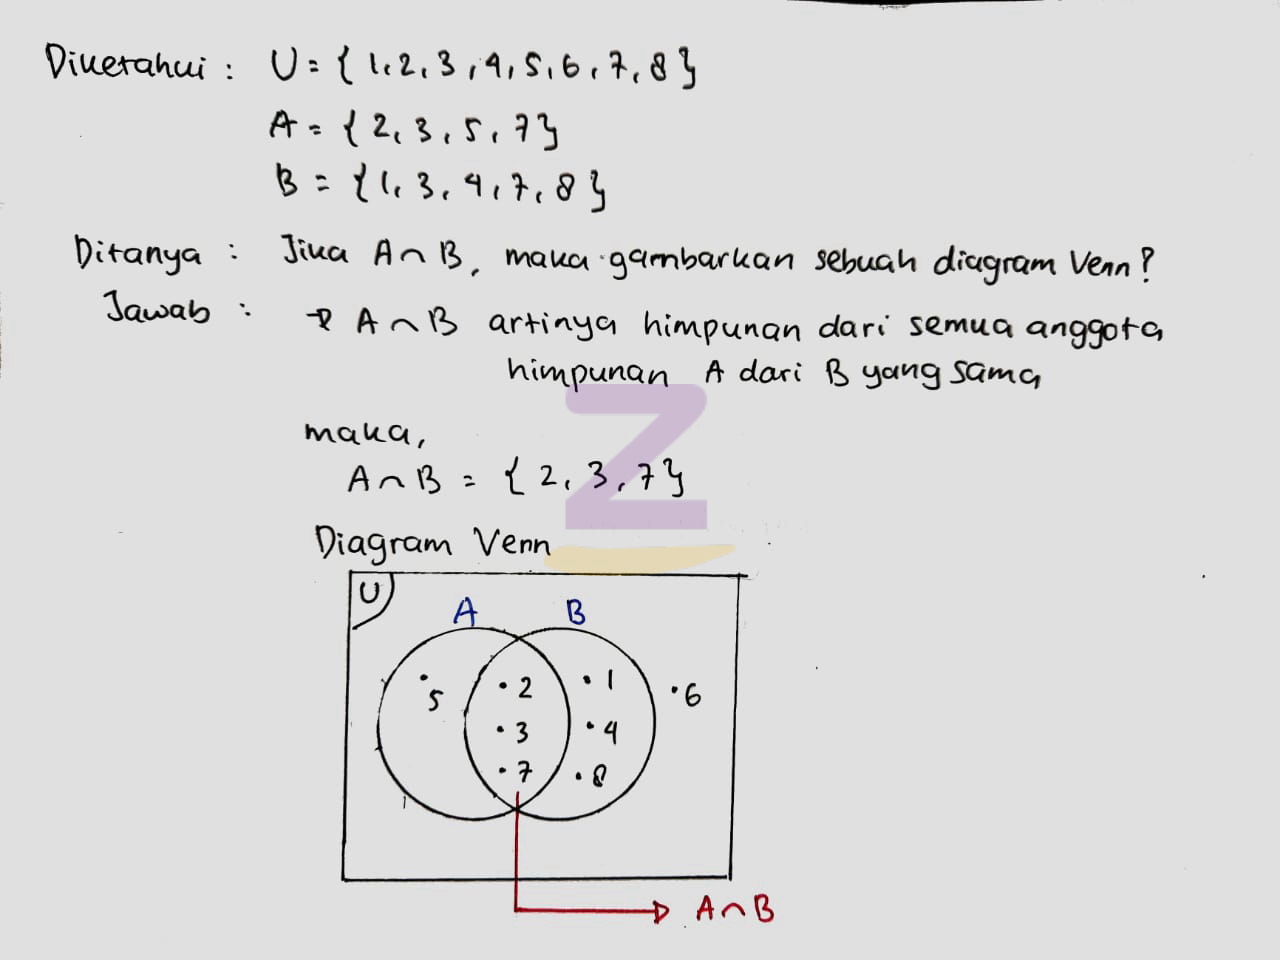 Diketahui : U = { 1, 2, 3, 4, 5, 6, 7, 8 }
A = { 2, 3, 5, 7 }
B = { 1, 3, 4, 7, 8 }
Ditanya : Jika A ∩ B, maka gambarkan sebuah diagram Venn?
Jawab : → A ∩ B artinya himpunan dari semua anggota
himpunan A dari B yang sama
maka,
A ∩ B = { 2, 3, 7 }
Diagram Venn
U
A B
5 2 1 6
3 4
7 8
A ∩ B
Z